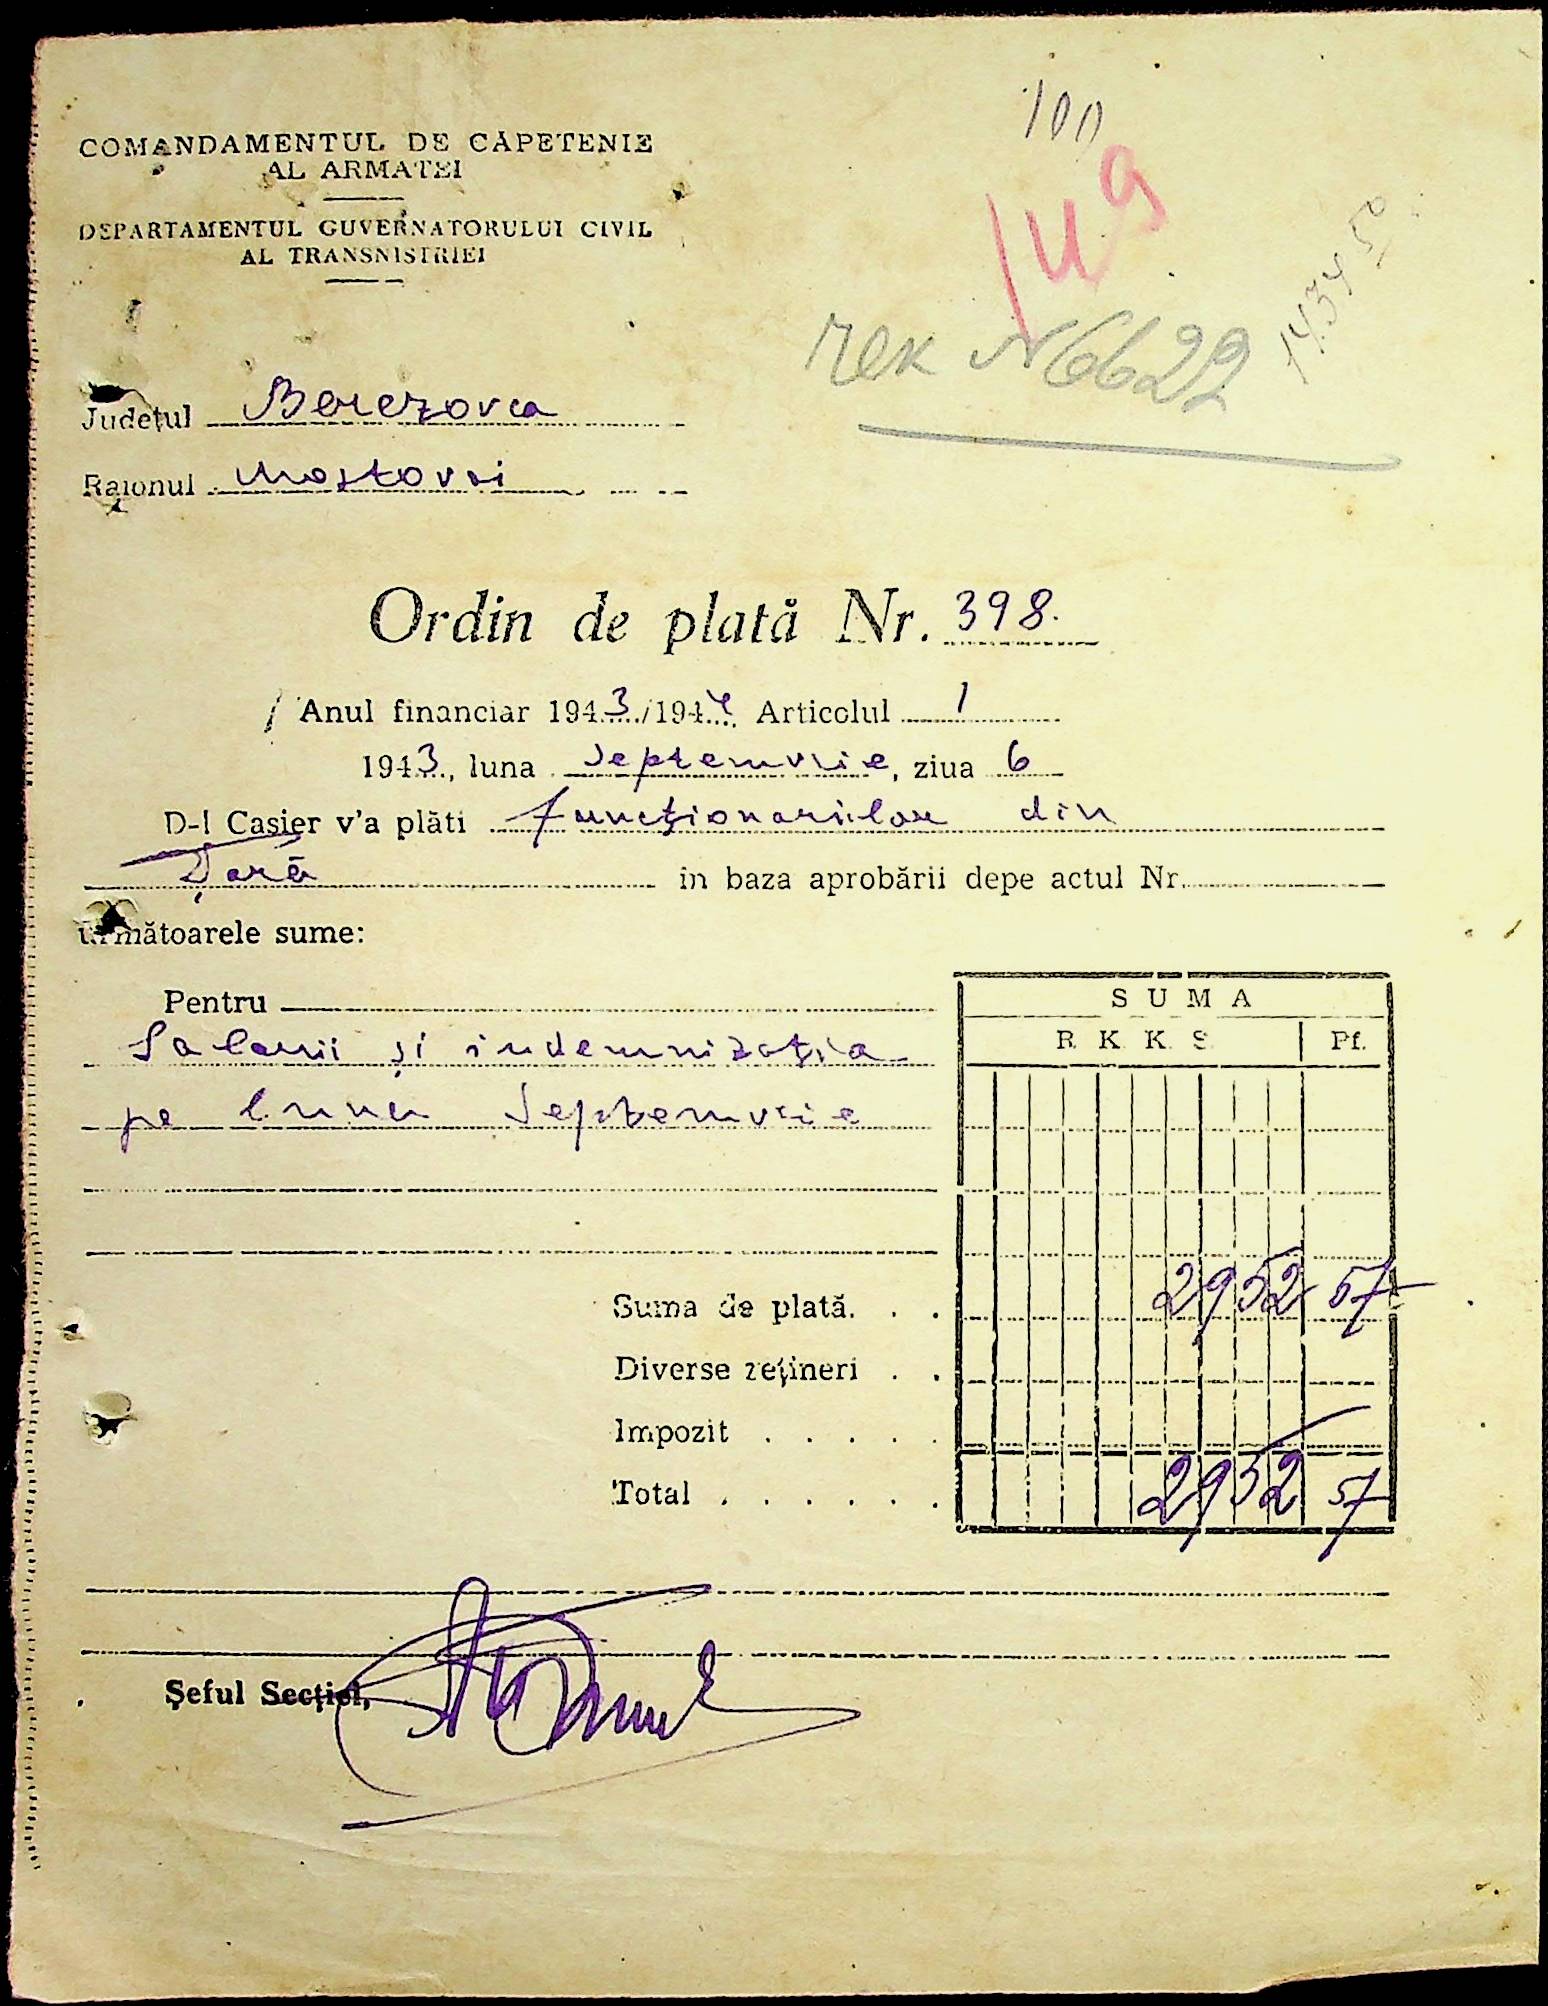 COMANDAMENTUL DE CĂPETENIE
AL ARMATEI
DEPARTAMENTUL GUVERNATORULUI CIVIL
AL TRANSNISTRIEI
100
149
1434 50
чек N 6622
Județul Berezovca
Raionul Mostovoi
Ordin de plată Nr. 398.
Anul financiar 1943/1944 Articolul 1
1943, luna Septemvrie, ziua 6
D-l Casier v'a plăti funcționarilor din
Țară in baza aprobării depe actul Nr.
următoarele sume:
Pentru
Salarii și indemnizația
pe luna Septemvrie
SUMA
R. K. K. S. Pf.
Suma de plată. . . 2952 57
Diverse rețineri . .
Impozit . . . . .
Total . . . . . . 2952 57
Șeful Secției,